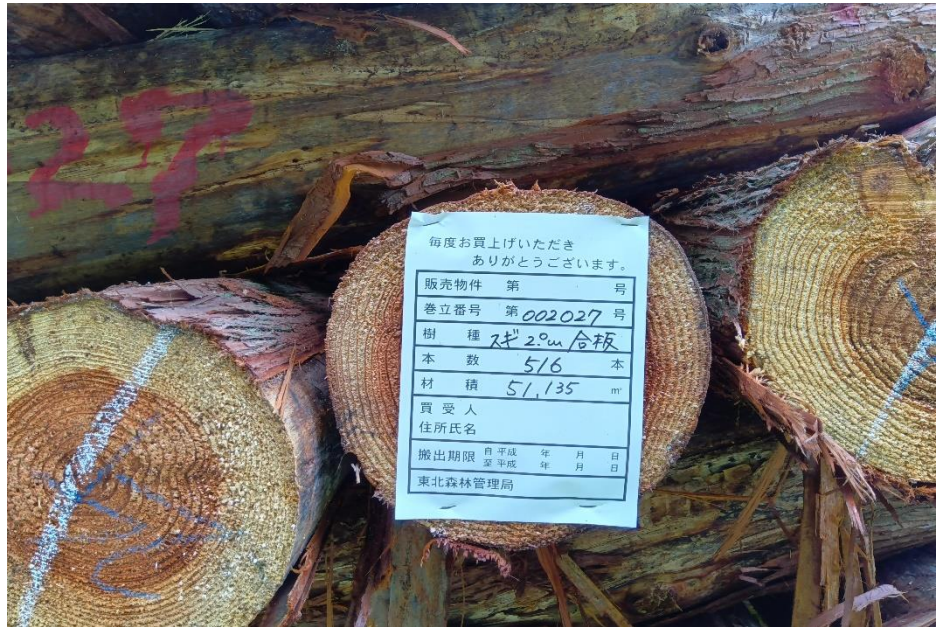 27
毎度お買上げいただき
ありがとうございます。
販売物件 第 号
巻立番号 第002027号
樹種 スギ 2.0m 合板
本数 516 本
材積 51,135 m³
買受人
住所氏名
搬出期限 自 平成 年 月 日
至 平成 年 月 日
東北森林管理局